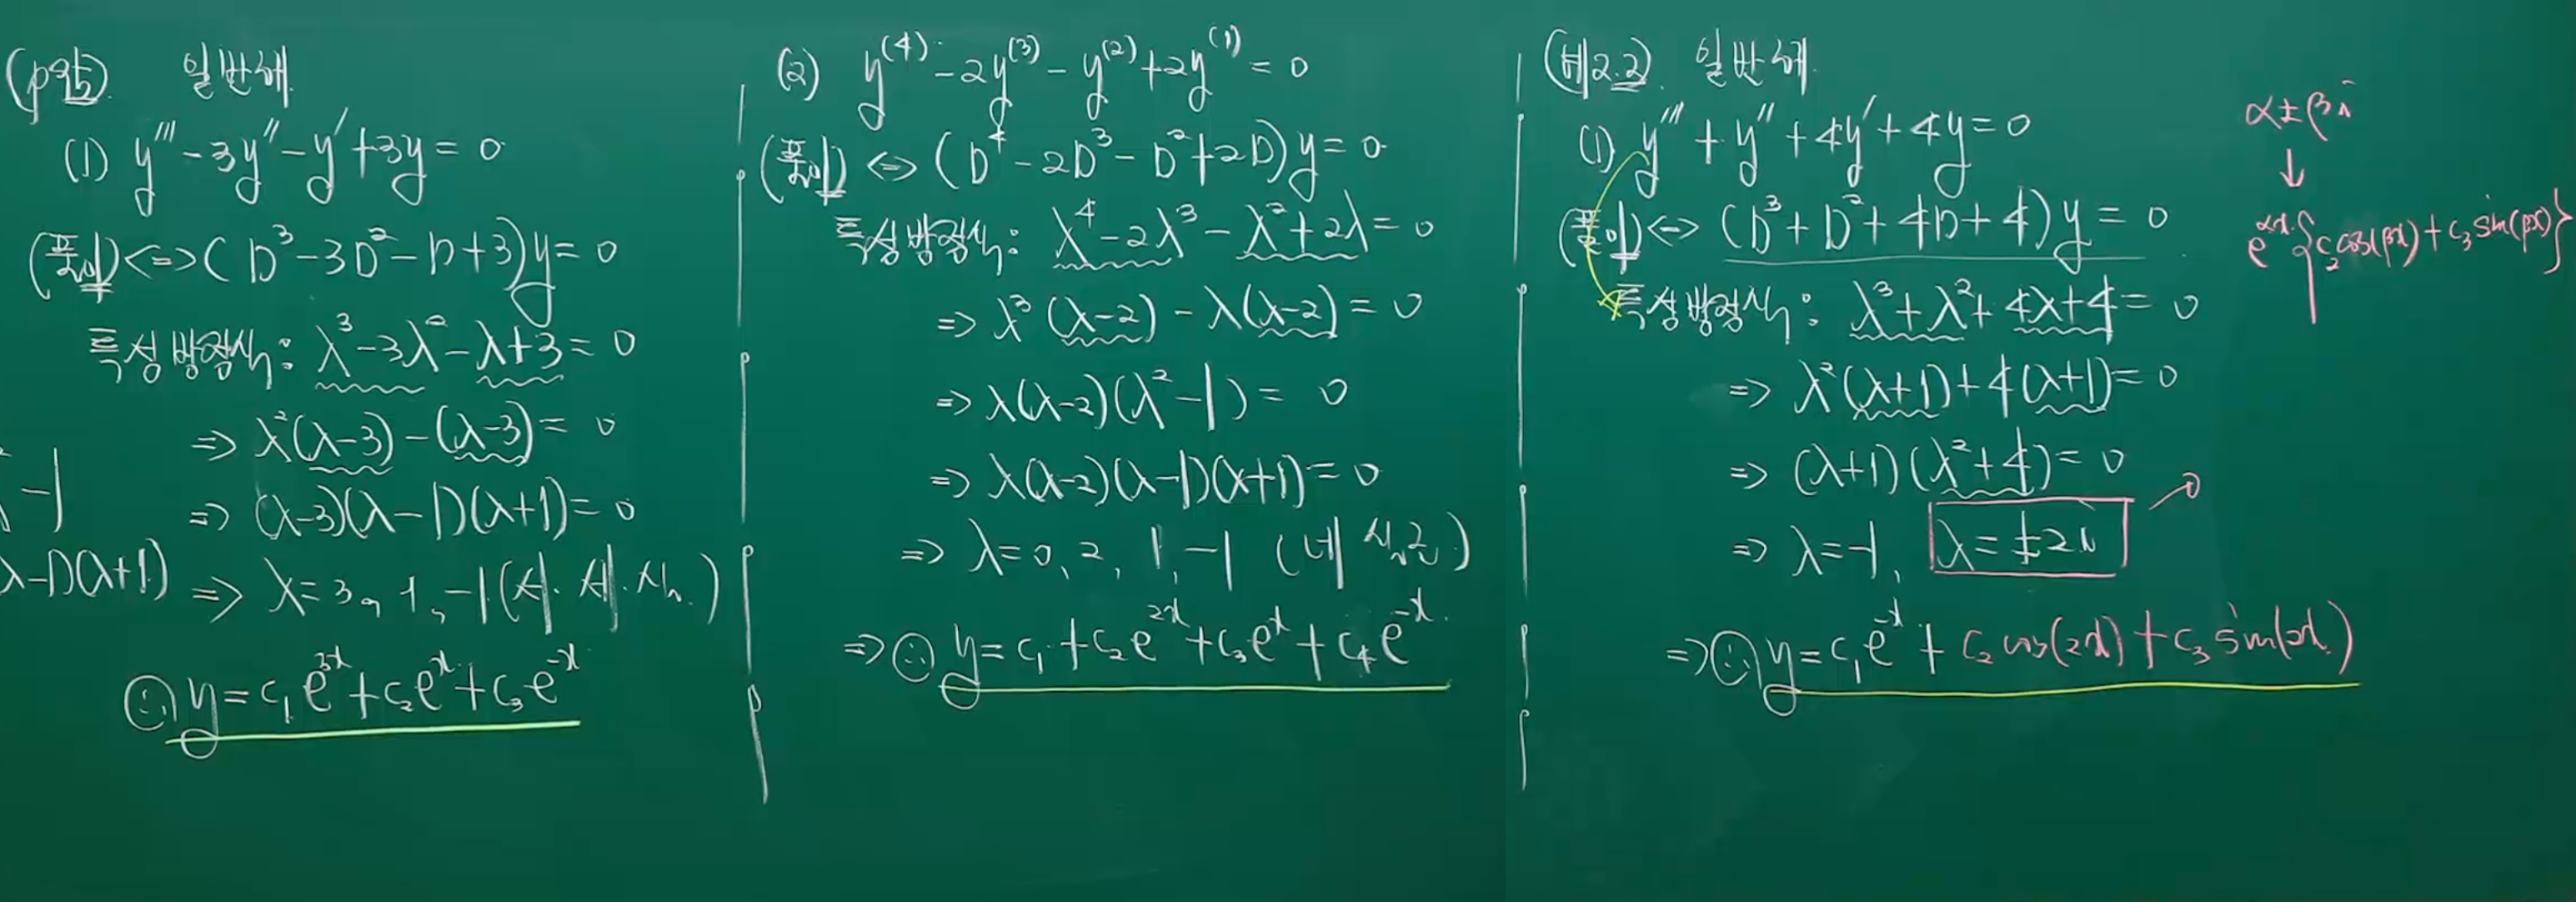 (p95) 일반해
(1) y''' - 3y'' - y' + 3y = 0
(풀이) <=> (D³ - 3D² - D + 3)y = 0
특성방정식: λ³ - 3λ² - λ + 3 = 0
=> λ²(λ-3) - (λ-3) = 0
-1
=> (λ-3)(λ-1)(λ+1) = 0
λ-1)(λ+1)
=> λ = 3, 1, -1 (서. 서. 실.)
∴ y = c₁e^{3x} + c₂e^{x} + c₃e^{-x}
(2) y⁽⁴⁾ - 2y⁽³⁾ - y⁽²⁾ + 2y⁽¹⁾ = 0
(풀이) <=> (D⁴ - 2D³ - D² + 2D)y = 0
특성방정식: λ⁴ - 2λ³ - λ² + 2λ = 0
=> λ³(λ-2) - λ(λ-2) = 0
=> λ(λ-2)(λ²-1) = 0
=> λ(λ-2)(λ-1)(λ+1) = 0
=> λ = 0, 2, 1, -1 (네 실근)
=> ∴ y = c₁ + c₂e^{2x} + c₃e^{x} + c₄e^{-x}
(예2.2) 일반해
(1) y''' + y'' + 4y' + 4y = 0
(풀이) <=> (D³ + D² + 4D + 4)y = 0
특성방정식: λ³ + λ² + 4λ + 4 = 0
=> λ²(λ+1) + 4(λ+1) = 0
=> (λ+1)(λ²+4) = 0
=> λ = -1, λ = ±2i
=> ∴ y = c₁e^{-x} + c₂cos(2x) + c₃sin(2x)
α ± βi
↓
e^{αx}{c₂cos(βx) + c₃sin(βx)}
0